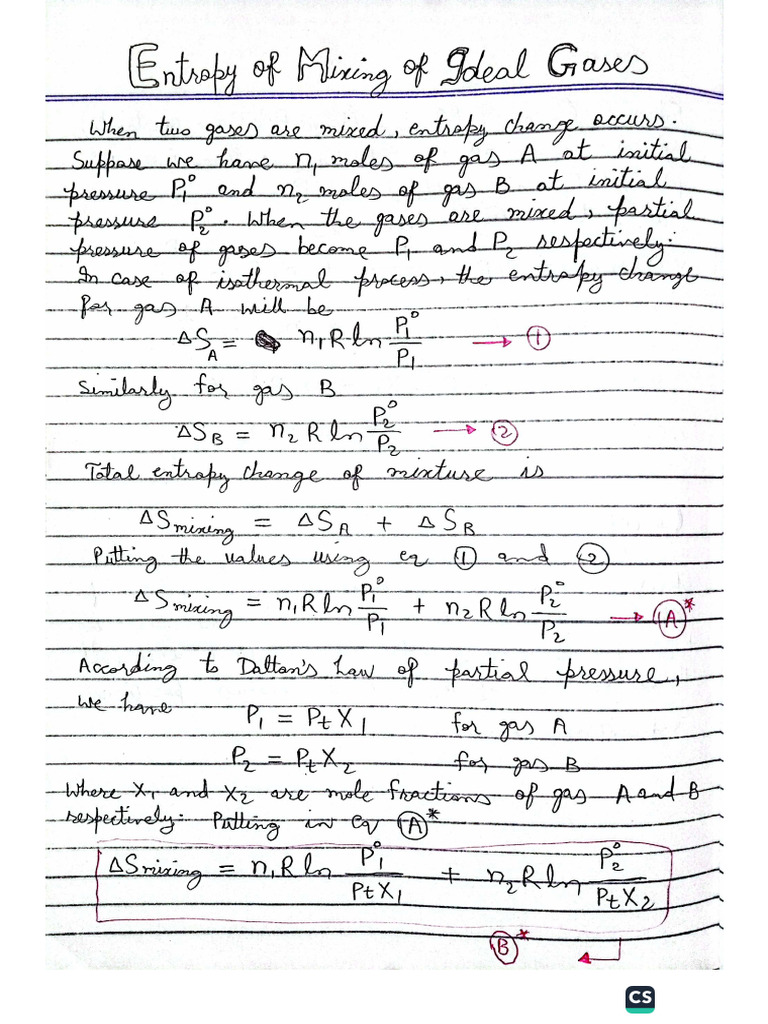 Entropy of Mixing of Ideal Gases
When two gases are mixed, entropy change occurs.
Suppose we have n₁ moles of gas A at initial
pressure P₁° and n₂ moles of gas B at initial
pressure P₂°. When the gases are mixed, partial
pressure of gases become P₁ and P₂ respectively:
In case of isothermal process, the entropy change
for gas A will be
ΔS_A = n₁R ln P₁°/P₁ → ①
Similarly for gas B
ΔS_B = n₂ R ln P₂°/P₂ → ②
Total entropy change of mixture is
ΔS mixing = ΔS_A + ΔS_B
Putting the values using eq ① and ②
ΔS mixing = n₁R ln P₁°/P₁ + n₂R ln P₂°/P₂ → Ⓐ*
According to Dalton's Law of partial pressure,
we have
P₁ = Pt X₁ for gas A
P₂ = Pt X₂ for gas B
Where X₁ and X₂ are mole fractions of gas A and B
respectively: Putting in eq Ⓐ*
ΔS mixing = n₁R ln P₁°/PtX₁ + n₂R ln P₂°/PtX₂
Ⓑ* ←
CS